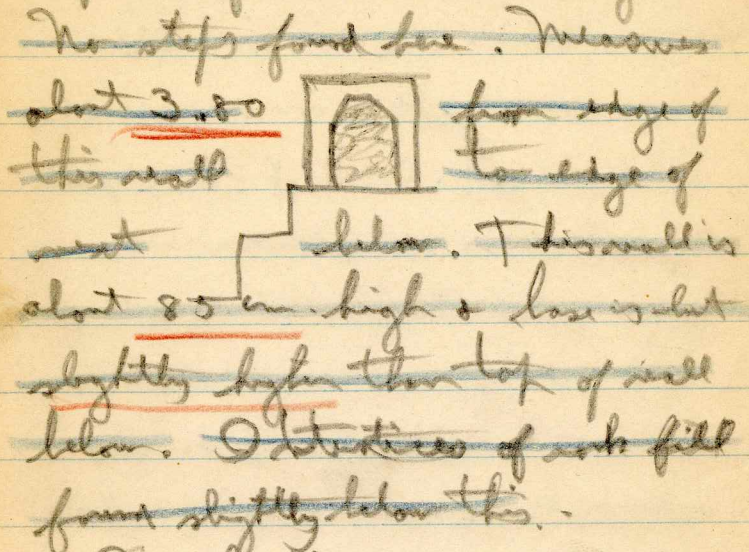 No steps found here. Measures
about 3.80 from edge of
this wall to edge of
next below. This wall is
about 85 cm. high & base is but
slightly higher than top of wall
below. Interstices of rock fill
found slightly below this.